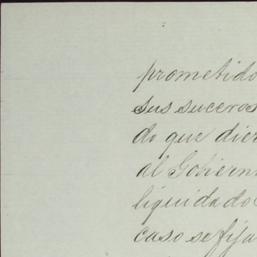 prometido
sus suceros
do que dier
al Gobiern
liquidado
caso se fija